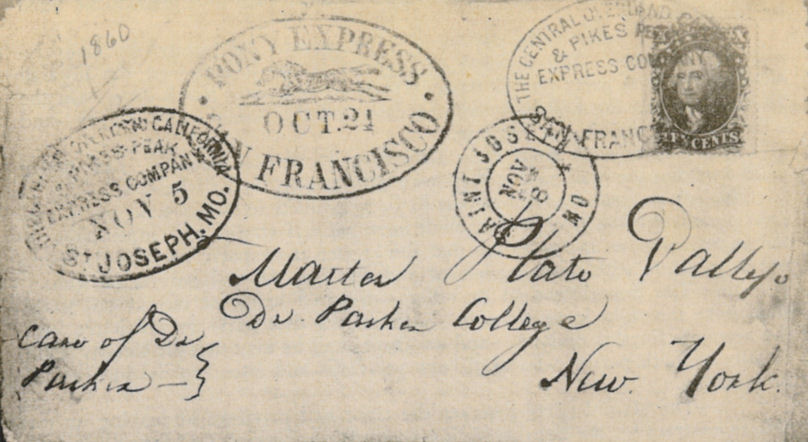 1860
PONY EXPRESS
OCT. 21
SAN FRANCISCO
THE CENTRAL OVERLAND
& PIKES PE
EXPRESS COMPANY
SAN FRANC
TEN CENTS
CALIFORNIA
& PIKES PEAK
EXPRESS COMPAN
NOV 5
ST JOSEPH, MO.
SAINT JOSEPH
8
NOV
MO
Master Plato Vallejo
Dr. Parker College
New. York.
Care of Dr
Parker